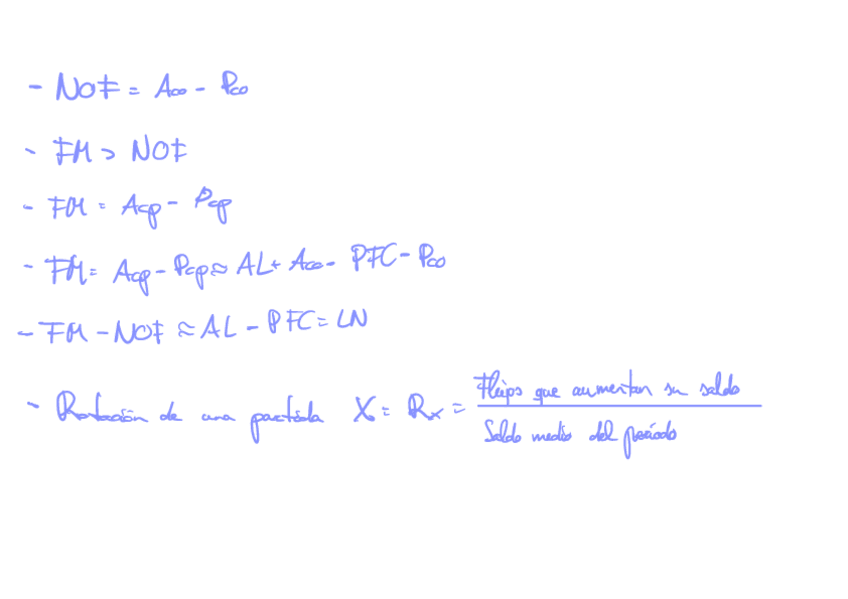 - NOF = Aco - Pco
- FM > NOF
- FM = Acp - Pcp
- FM = Acp - Pcp ≈ AL + Aco - PFC - Pco
- FM - NOF ≈ AL - PFC = LN
- Rotación de una partida X = Rx = Flujos que aumentan su saldo / Saldo medio del período